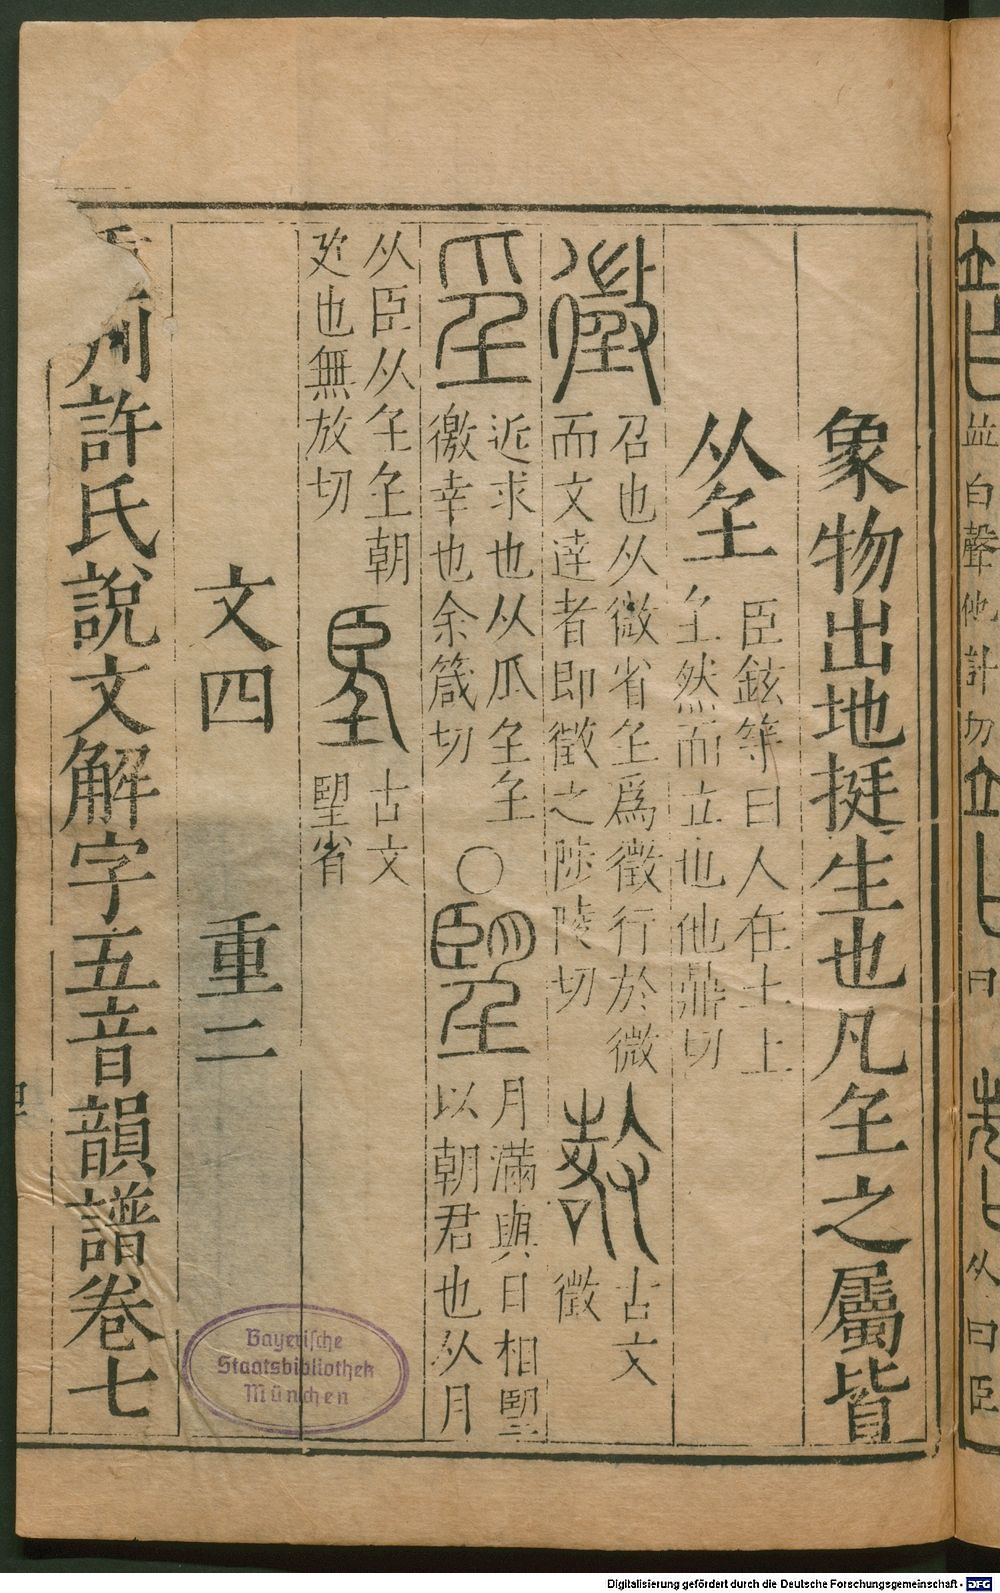 象物出地挺生也凡𡈼之屬皆
从𡈼 臣鉉等曰人在土上
𡈼然而立也他鼎切
徵 召也从微省𡈼爲徵行於微
而文達者即徵之陟陵切 古文
徵
𡍮 近求也从爪𡈼𡈼
徼幸也余箴切 〇 朢 月滿與日相朢
以朝君也从月
从臣从𡈼𡈼朝
廷也無放切 𦣠 古文
朢省
文四 重二
刊許氏說文解字五音韻譜卷七
竝白聲他計切
曰
从曰臣
Bayerische
Staatsbibliothek
München
Digitalisierung gefördert durch die Deutsche Forschungsgemeinschaft - DFG